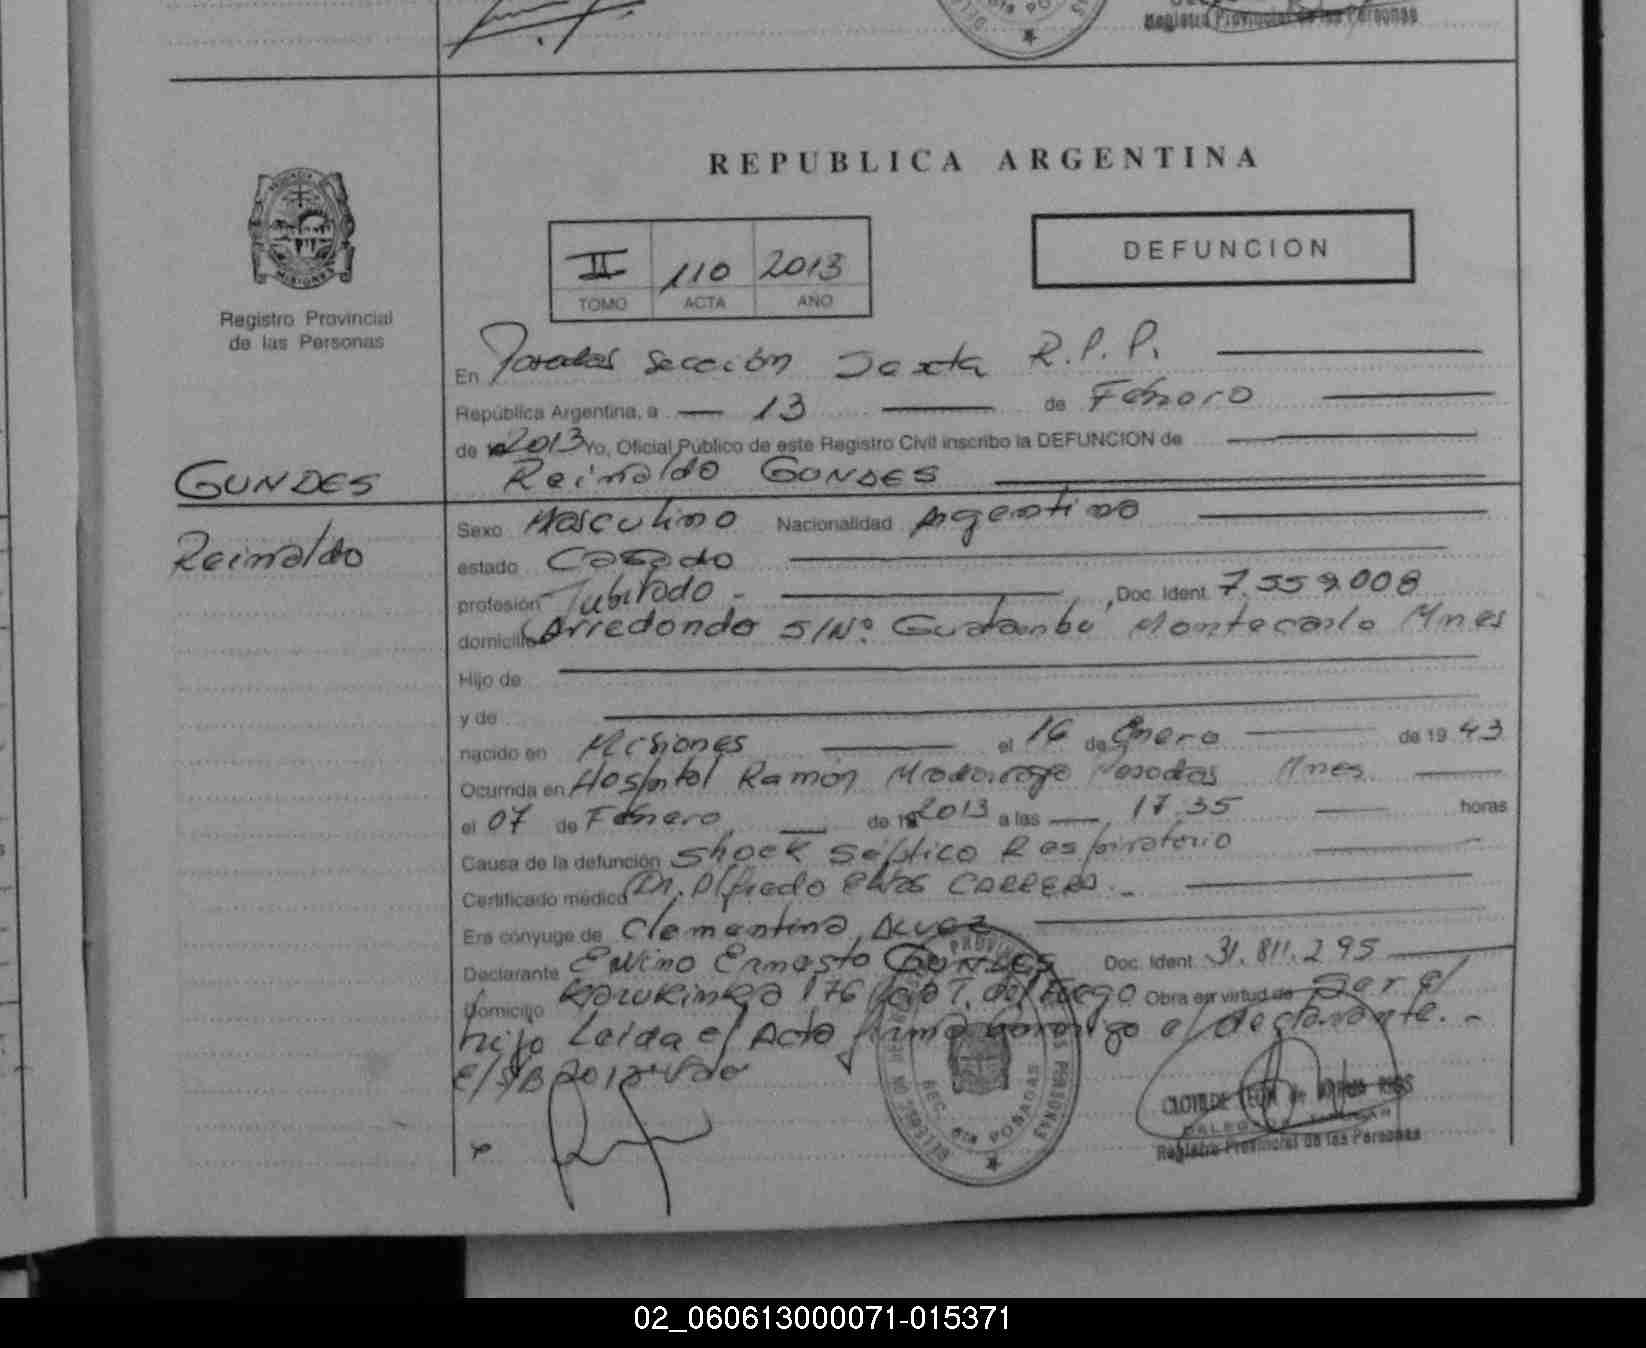 Registro Provincial de las Personas
REPUBLICA ARGENTINA
DEFUNCION
II 110 2013
TOMO ACTA AÑO
Registro Provincial
de las Personas
En Posadas Sección Sexta R.P.P.
República Argentina, a 13 de Febrero
de 2013 Yo, Oficial Público de este Registro Civil inscribo la DEFUNCION de
GUNDES
Reinaldo GUNDES
Reinaldo
Sexo Masculino Nacionalidad Argentina
estado Casado
profesión Jubilado - Doc. Ident. 7.559.008
domicilio Arredondo S/Nº Guatambú Montecarlo Mnes
Hijo de
y de
nacido en Misiones el 16 de Enero de 19 43
Ocurrida en Hospital Ramón Madariaga Posadas Mnes
el 07 de Febrero de 2013 a las 17,35 horas
Causa de la defunción Shock Séptico Respiratorio
Certificado médico Dr. Alfredo CARRERA.-
Era cónyuge de Clementina Alvez
Declarante Ernesto GUNDES Doc. Ident. 31.811.295
Domicilio Karukinka 176 T. del Fuego Obra en virtud de Ser el
hijo Leída el Acta firma conmigo el declarante.-
2013
REC. 6ta POSADAS
CLOTILDE
DELEGADA
Registro Provincial de las Personas
02_060613000071-015371